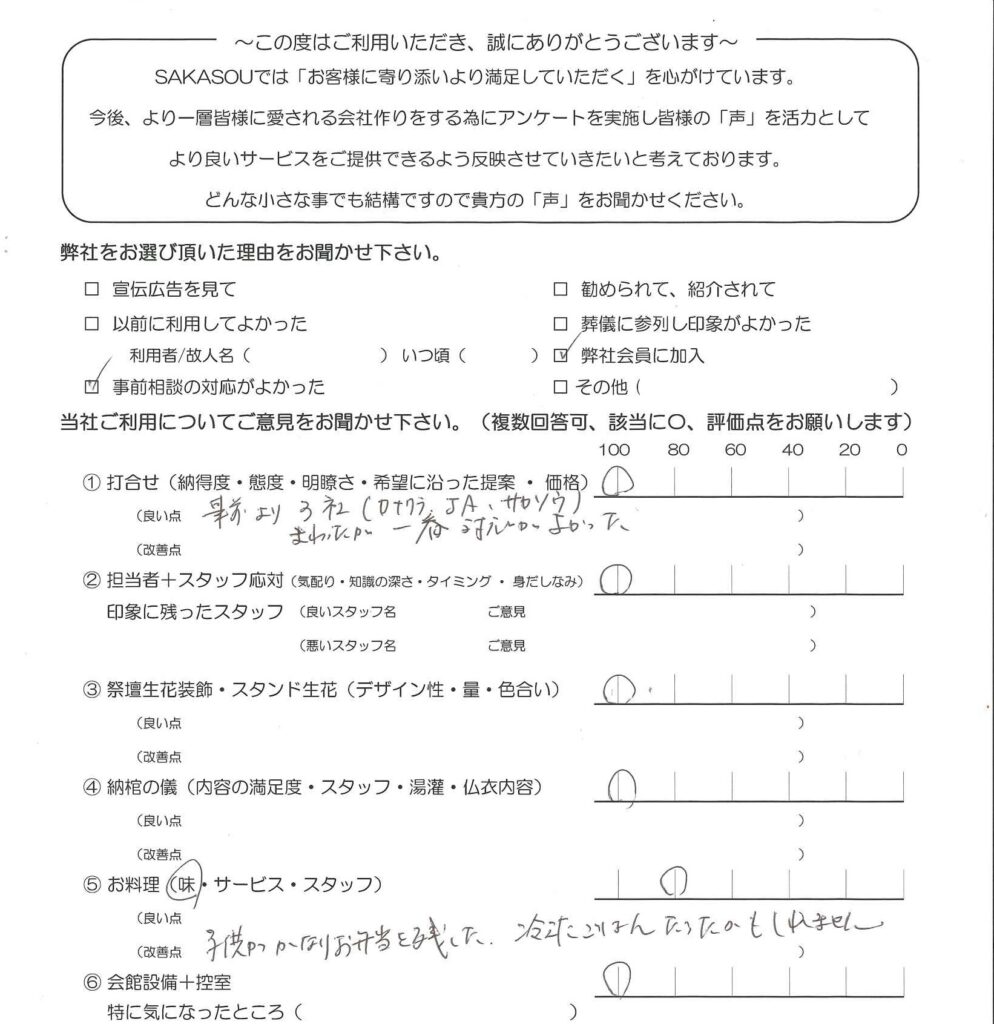 ～この度はご利用いただき、誠にありがとうございます～
SAKASOUでは「お客様に寄り添いより満足していただく」を心がけています。
今後、より一層皆様に愛される会社作りをする為にアンケートを実施し皆様の「声」を活力として
より良いサービスをご提供できるよう反映させていきたいと考えております。
どんな小さな事でも結構ですので貴方の「声」をお聞かせください。
弊社をお選び頂いた理由をお聞かせ下さい。
□ 宣伝広告を見て □ 勧められて、紹介されて
□ 以前に利用してよかった □ 葬儀に参列し印象がよかった
利用者/故人名（ ）いつ頃（ ） ☑ 弊社会員に加入
☑ 事前相談の対応がよかった □ その他（ ）
当社ご利用についてご意見をお聞かせ下さい。（複数回答可、該当に〇、評価点をお願いします）
100 80 60 40 20 0
① 打合せ（納得度・態度・明瞭さ・希望に沿った提案 ・ 価格）
（良い点 事前より 3社（ ＪＡ、サカソウ）
まわったが 一番 対応が よかった ）
（改善点 ）
② 担当者＋スタッフ応対（気配り・知識の深さ・タイミング ・ 身だしなみ）
印象に残ったスタッフ （良いスタッフ名 ご意見 ）
（悪いスタッフ名 ご意見 ）
③ 祭壇生花装飾・スタンド生花（デザイン性・量・色合い）
（良い点 ）
（改善点 ）
④ 納棺の儀（内容の満足度・スタッフ・湯灌・仏衣内容）
（良い点 ）
（改善点 ）
⑤ お料理（味・サービス・スタッフ）
（良い点 ）
（改善点 子供が かなりお弁当を残した、冷えたごはんだったかもしれません ）
⑥ 会館設備＋控室
特に気になったところ（ ）